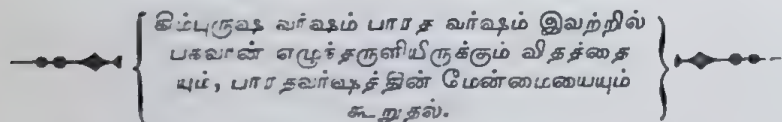 கிம்புருஷ வர்ஷம் பாரத வர்ஷம் இவற்றில்
பகவான் எழுந்தருளியிருக்கும் விதத்தை
யும், பாரதவர்ஷத்தின் மேன்மையையும்
கூறுதல்.